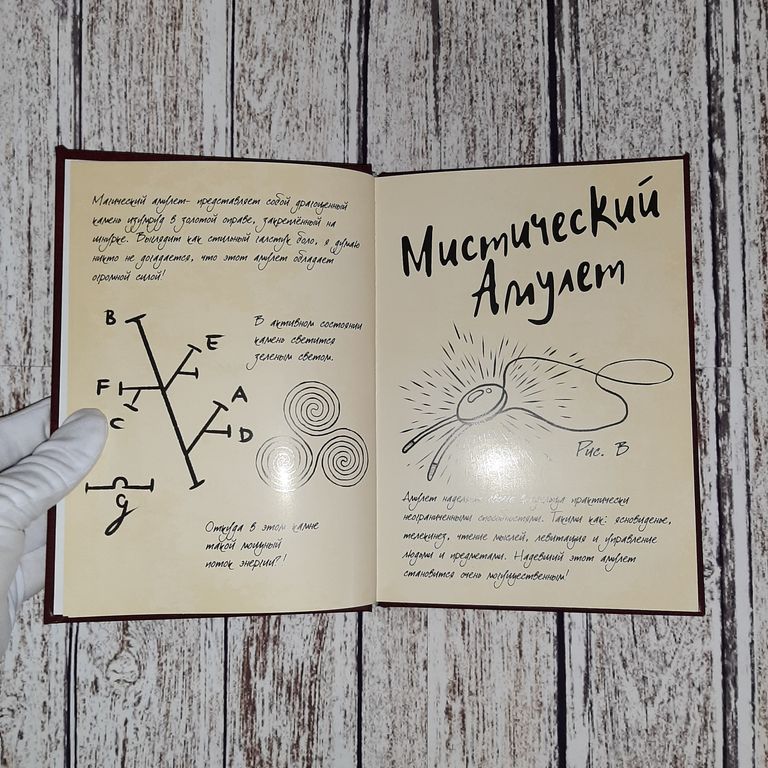 Магический амулет- представляет собой драгоценный
камень изумруд в золотой оправе, закреплённый на
шнурке. Выглядит как стильный галстук боло, я думаю
никто не догадается, что этот амулет обладает
огромной силой!
B
E
F
C
A
D
G
В активном состоянии
камень светится
зеленым светом.
Откуда в этом камне
такой мощный
поток энергии?!
Мистический
Амулет
Рис. В
Амулет наделяет своего практически
неограниченными способностями. Такими как: ясновиденье,
телекинез, чтение мыслей, левитация и управление
людьми и предметами. Надевший этот амулет
становится очень могущественным!